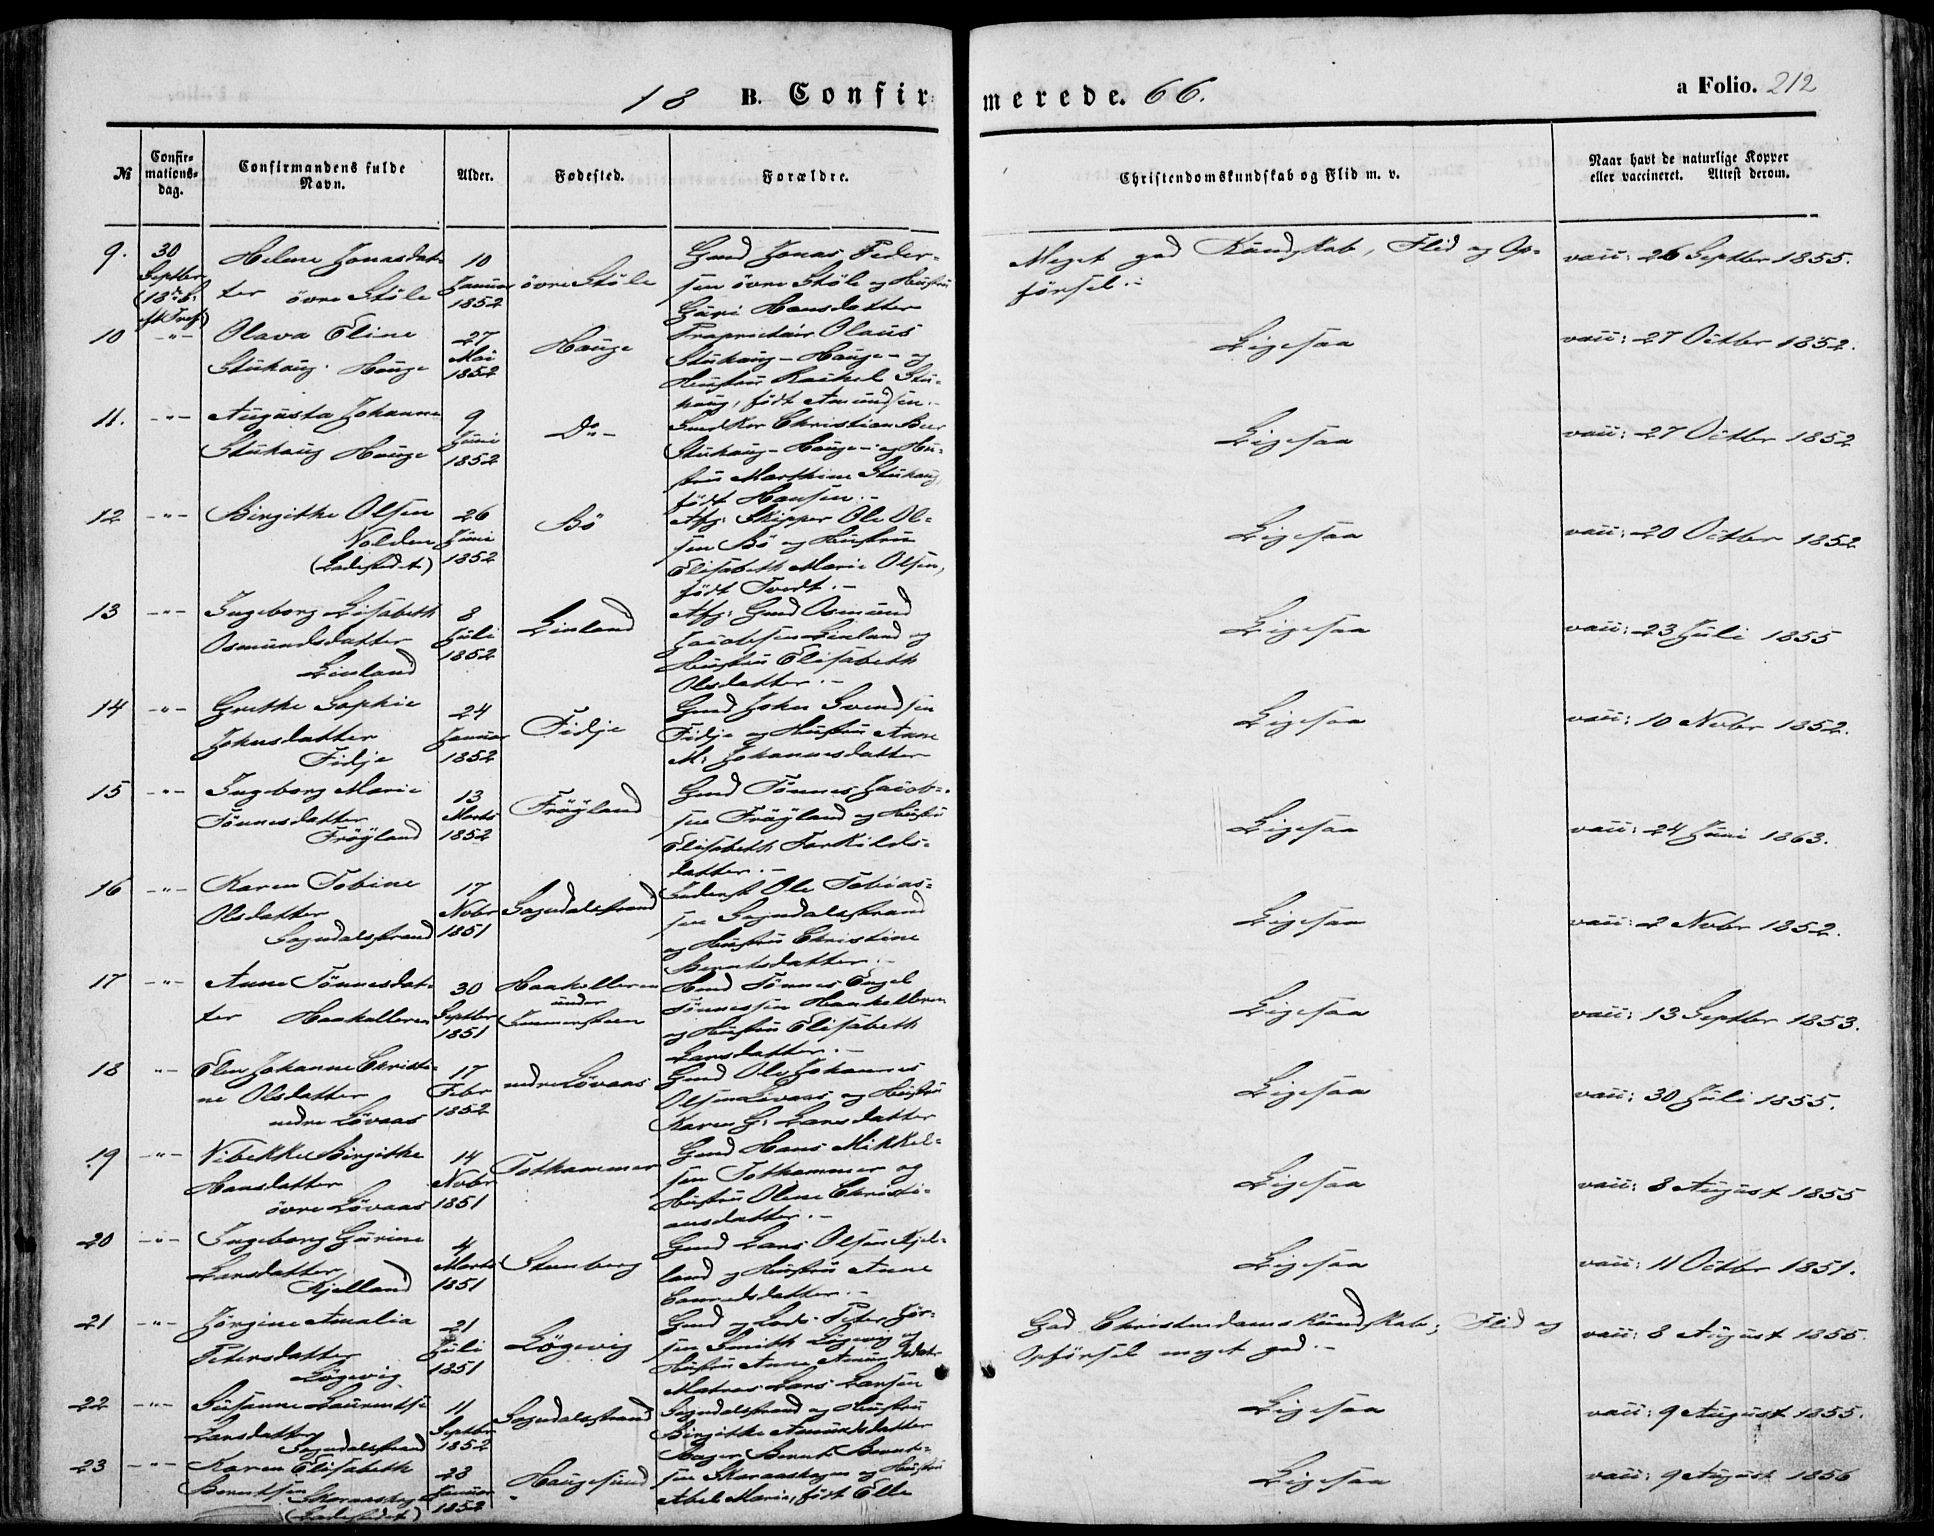 18 B. Confirmerede. 66. a Folio. 212
№ Confirmationsdag. Confirmandens fulde Navn. Alder. Fødested. Forældre. Christendomskundskab og Flid m. v. Naar havt de naturlige Kopper eller vaccineret. Attest derom.
9. 30 Septbr (18de S. eft Tref) Helene Jonasdatter övre Stöle 10 Januar 1852 övre Stöle Gmd Jonas Pedersen övre Stöle og Hustru Guri Hansdatter Meget god Kundskab, Flid og Opförsel.- vacc: 26 Septbr 1855.
10 -"- Olava Eline Stuhaug. Hauge 27 Mai 1852 Hauge Proprietair Olaus Stuhaug - Hauge - og Hustru Rachel Stuhaug, född Amundsen.- Ligesaa vacc: 27 Octbr 1852.
11. -"- Augusta Johanne Stuhaug Hauge 9 Juni 1852 Do- Christian Stuhaug - Hauge - og Hustru Marthine Stuhaug, född Hansen.- Ligesaa vacc: 27 Octbr 1852
12 -"- Birgithe Olsen Nolden (Ladestedet) 26 Juni 1852 Bö Afg: Skipper Ole Olsen Bö og Hustru Elisabeth Marie Olsen, född Tvedt.- Ligesaa vacc: 20 Octbr 1852
13 -"- Ingeborg Lisabeth Osmundsdatter Linland 8 Juli 1852 Linland Afg: Gmd Osmund Jacobsen Linland og Hustru Elisabeth Olsdatter.- Ligesaa vacc: 23 Juli 1855
14 -"- Grethe Sophie Johnsdatter Fidje 24 Januar 1852 Fidje Gmd John Svendsen Fidje og Hustru Anne M: Johannesdatter Ligesaa vacc: 10 Novbr 1852.
15 -"- Ingeborg Marie Tönnesdatter Fröyland 13 Marts 1852 Fröyland Gmd Tönnes Jacobsen Fröyland og Hustru Elisabeth Torkildsdatter.- Ligesaa vacc: 24 Juni 1863.
16 -"- Karen Tobine Olsdatter Sogndalstrand 17 Novbr 1851 Sogndalstrand Inderst Ole Tobiassen Sogndalstrand og Hustru Christine Berntsdatter.- Ligesaa vacc: 2 Novbr 1852.
17 -"- Anne Tönnesdatter Haakelleren 30 Septbr 1851 Haakelleren under Immersteen Hmd Tönnes Engel Tönnessen Haakelleren og Hustru Elisabeth Larsdatter.- Ligesaa vacc: 13 Septbr 1853.
18 -"- Elen Johanne Christine Olsdatter nedre Lövaas 17 Febr 1852 nedre Lövaas Gmd Ole Johannes Olsen Lövaas og Hustru Karen G: Larsdatter Ligesaa vacc: 30 Juli 1855.
19 -"- Vibekke Birgithe Hansdatter övre Lövaas 14 Novbr 1851 Tothammer Gmd Hans Mikkelsen Tothammer og Hustru Olene Christiansdatter.- Ligesaa vacc: 8 August 1855
20 -"- Ingeborg Gurine Larsdatter Kjelland 4 Marts 1851 Stenberg Gmd Lars Olsen Kjelland og Hustru Anne Conradsdatter.- Ligesaa vacc: 11 Octbr 1851.
21 -"- Jörgine Amalia Petersdatter Lögevig 21 Juli 1851 Lögevig Gmd og Lods Peter Jörsen Smith Lögevig og Hustru Anne Amundsdatter God Christendomskundskab; Flid og Opförsel meget god.- vacc: 8 August 1855.
22 -"- Susanne Laurentse Larsdatter Sogndalstrand 11 Septbr 1852 Sogndalstrand Matros Lars Larsen Sogndalstrand og Hustru Birgithe Amundsdatter Ligesaa vacc: 9 August 1855.
23 -"- Karen Elisabeth Berntsen Skaraaskogen (Ladestedet) 28 Januar 1852 Haugesund Bager Bernt Berntsen Skaraaskogen og Hustru Abel Marie, född Elle Ligesaa vacc: 9 August 1856